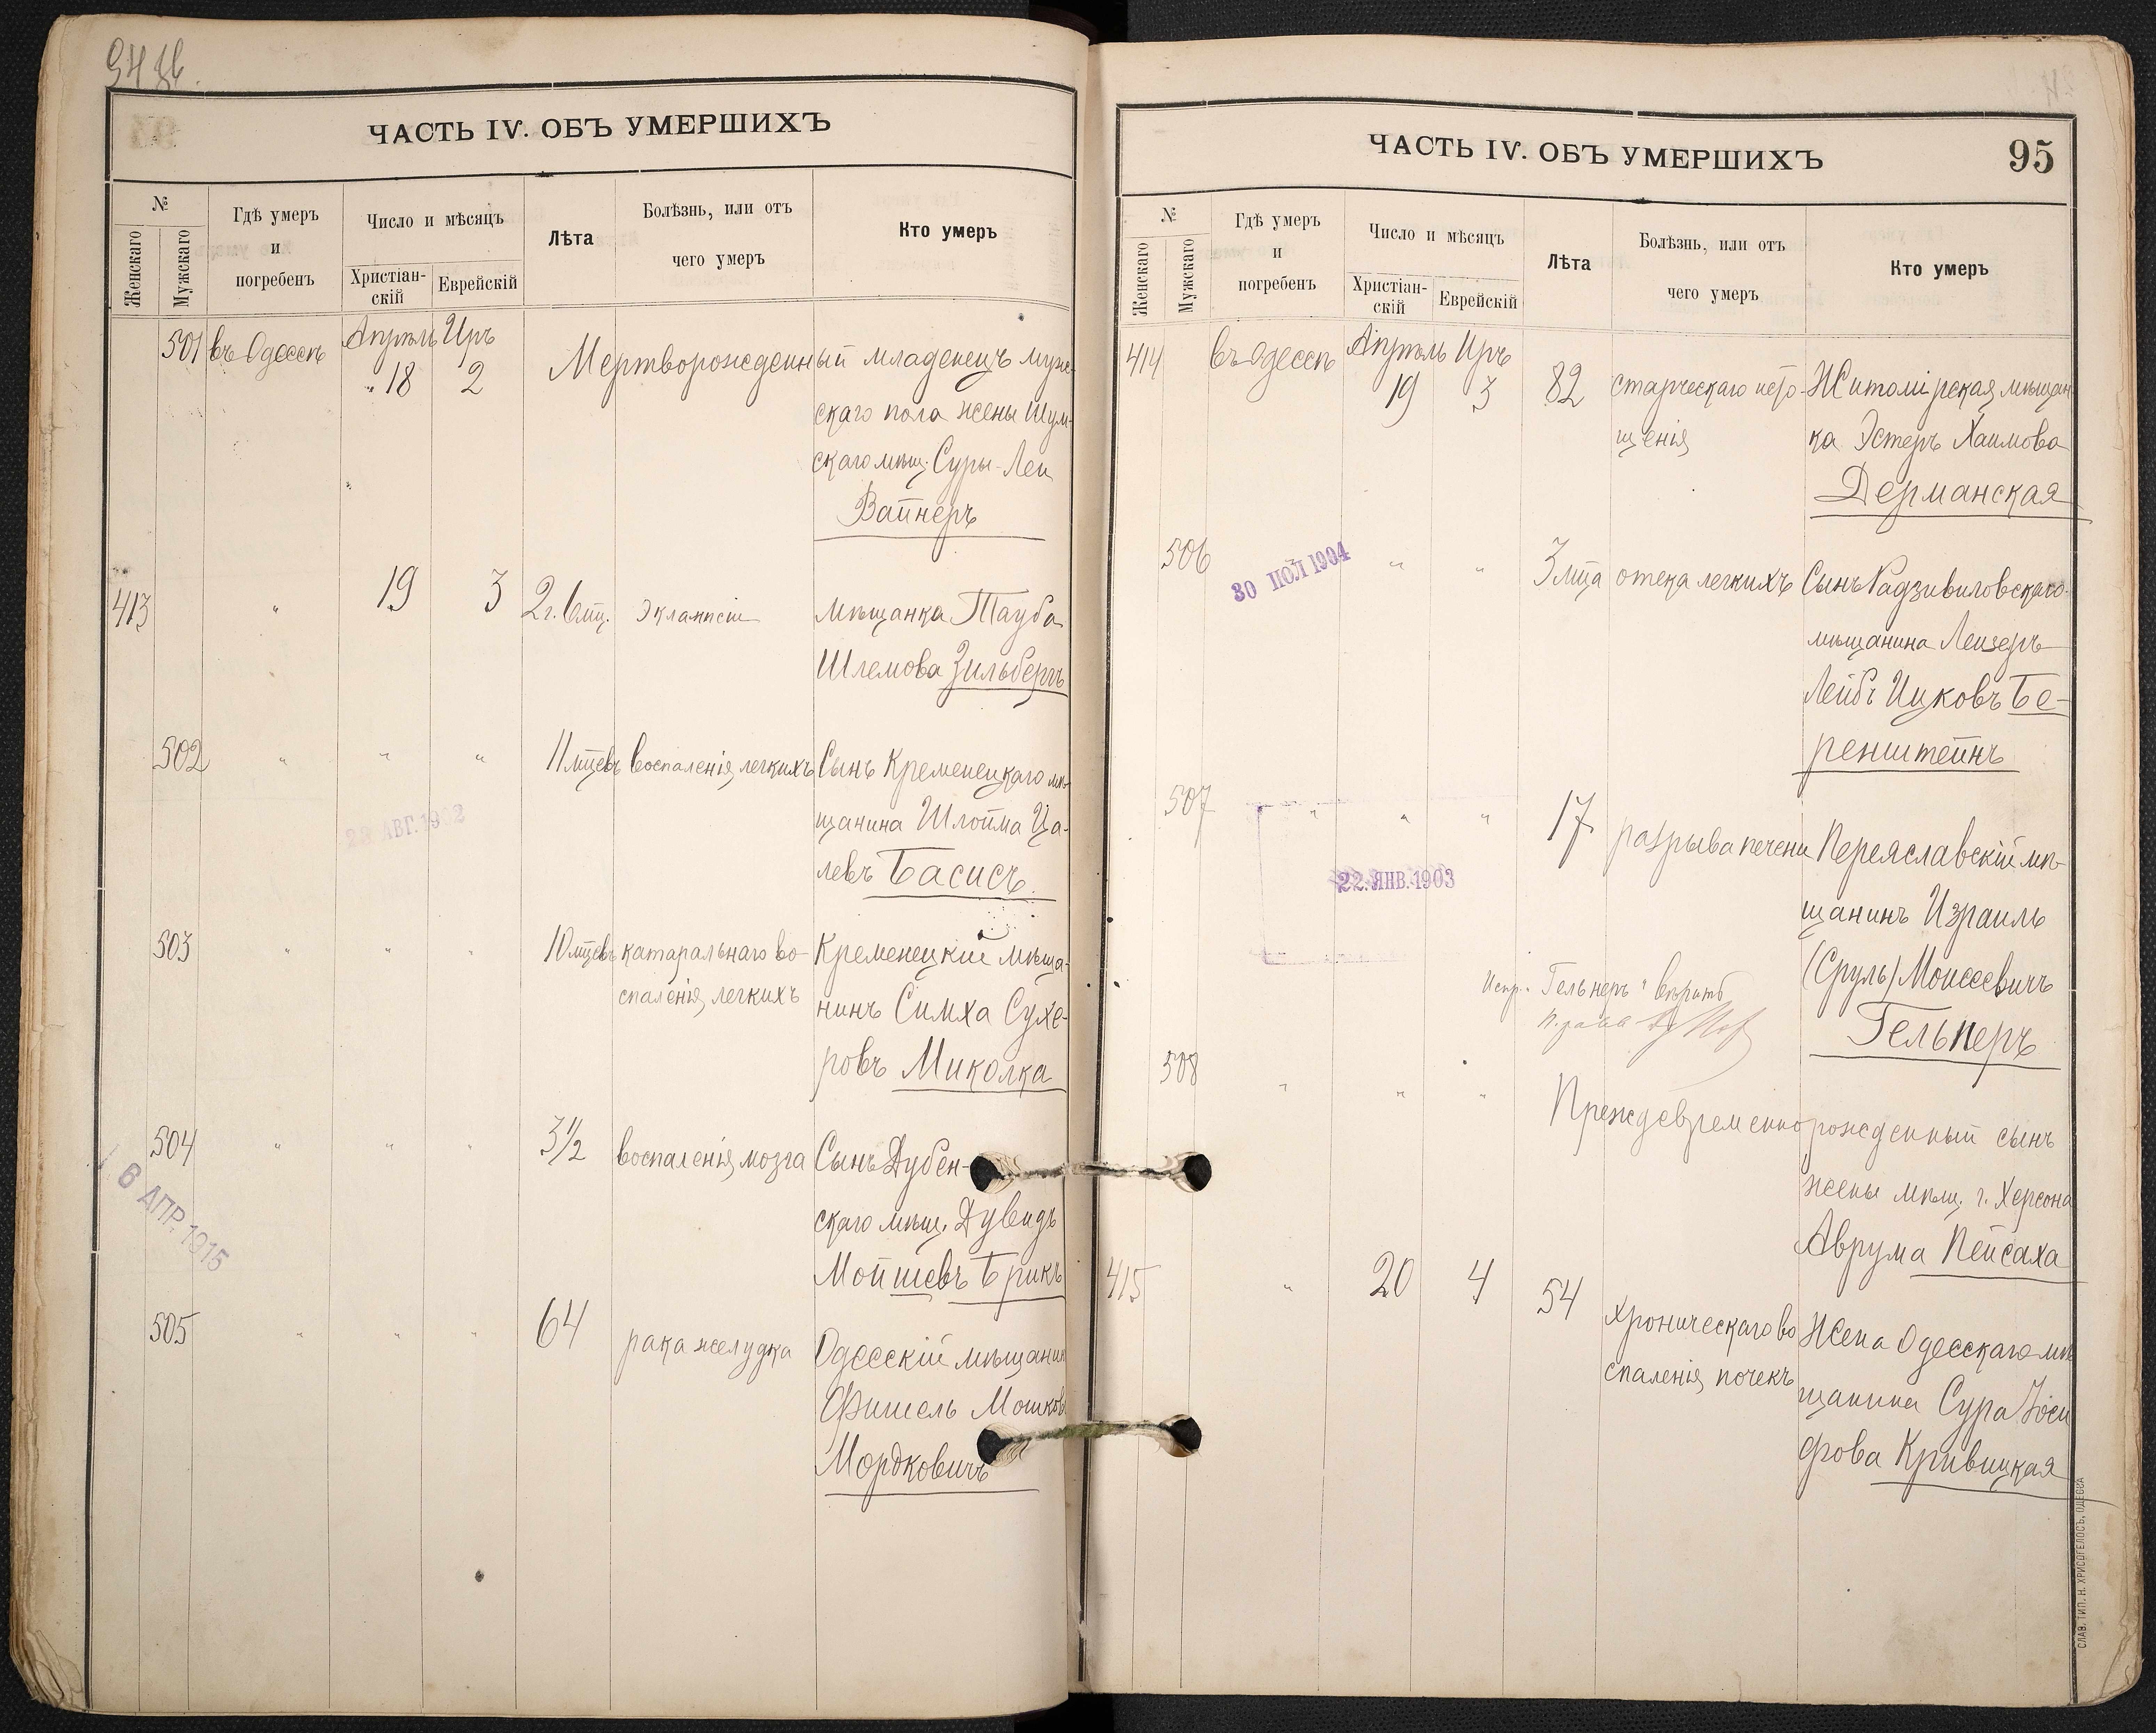 ЧАСТЬ IV. ОБЪ УМЕРШИХЪ
№
Женскаго
Мужскаго
Гдѣ умеръ
и
погребенъ
Число и мѣсяцъ
Христіан-
скій
Еврейскій
Лѣта
Болѣзнь, или отъ
чего умеръ
Кто умеръ
501 въ Одессѣ Апрѣль Иръ
18 2 Мертворожденный младенецъ муже-
скаго пола жены Шум-
скаго мѣщ. Суры-Леи
Вайнеръ
413 " 19 3 2 г. 6 мц. Эклампсіи мѣщанка Тауба
Шлемова Зильбергъ
502 " " " 11 мцевъ воспаленія легкихъ Сынъ Кременецкаго мѣ-
щанина Шлойма Ца-
левъ Басисъ.
28 АВГ. 1902
503 " " " 10 мцевъ катаральнаго во- Кременецкій мѣща-
спаленія легкихъ нинъ Симха Сухе-
ровъ Миколка
504 " " " 3½ воспаленія мозга Сынъ Дубен-
скаго мѣщ. Дувидъ
Мойшевъ Брикъ
6 АПР. 1915
505 " " " 64 рака желудка Одесскій мѣщанин
Фишель Мошков
Мордковичъ
ЧАСТЬ IV. ОБЪ УМЕРШИХЪ
95
№
Женскаго
Мужскаго
Гдѣ умеръ
и
погребенъ
Число и мѣсяцъ
Христіан-
скій
Еврейскій
Лѣта
Болѣзнь, или отъ
чего умеръ
Кто умеръ
414 въ Одессѣ Апрѣль Иръ
19 3 82 старческаго исто- Житомірская мѣщан
щенія ка Эстеръ Хаимова
Дерманская
506 " " 3 мца отека легкихъ Сынъ Радзивиловскаго
30 ІЮЛ 1904
мѣщанина Лейзеръ
Лейбъ Ицковъ Бе-
ренштейнъ
507 " " " 17 разрыва печени Переяславскій мѣ-
щанинъ Израиль
22. ЯНВ. 1903
(Сруль) Моисеевичъ
Гельперъ
Испр. "Гельнеръ" вѣрить
508 " " " Преждевременнорожденный сынъ
жены мѣщ. г. Херсона
Аврума Пейсаха
415 " 20 4 54 хроническаго во Жена Одесскаго мѣ
спаленія почекъ щанина Сура Іоси
фова Кривицкая
СЛАВ. ТИП. Н. ХРИСОГЕЛОСЪ, ОДЕССА